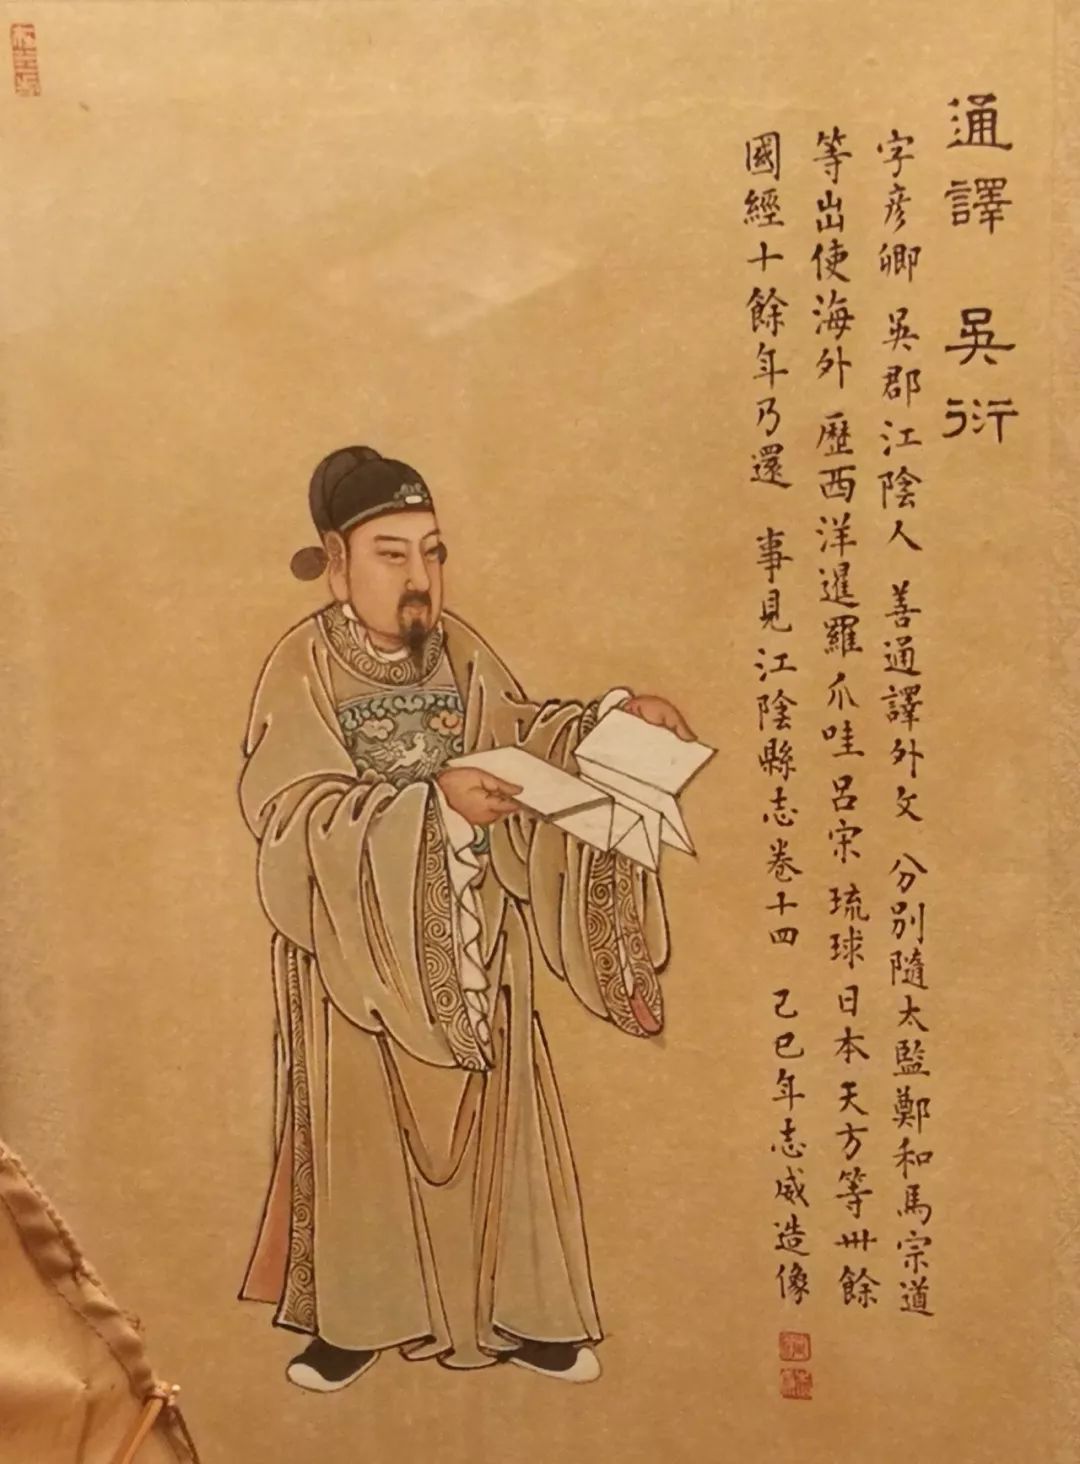 通譯 吳衍
字彥卿 吳郡江陰人 善通譯外文 分別隨太監鄭和馬宗道
等出使海外 歷西洋暹羅爪哇呂宋琉球日本天方等卅餘
國經十餘年乃還 事見江陰縣志卷十四 己巳年志威造像